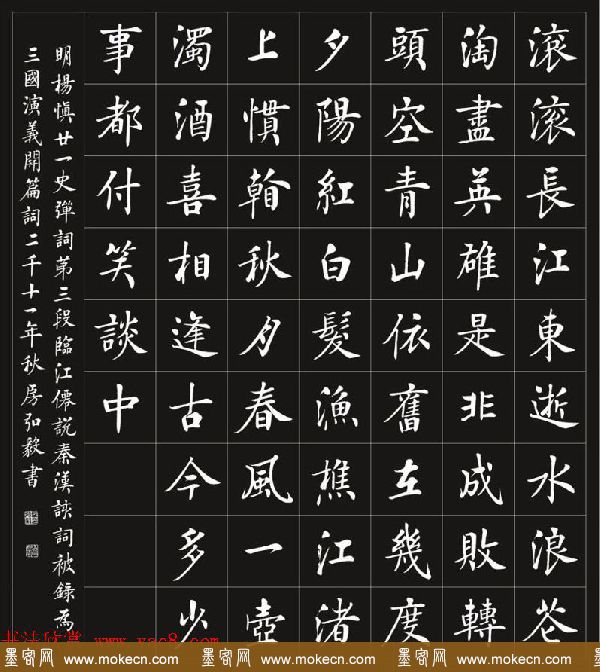 滾滾長江東逝水浪花
淘盡英雄是非成敗轉
頭空青山依舊在幾度
夕陽紅白髮漁樵江渚
上慣看秋月春風一壺
濁酒喜相逢古今多少
事都付笑談中
明楊慎廿一史彈詞第三段臨江僊說秦漢該詞被錄爲
三國演義開篇詞二千十一年秋房弘毅書
书法欣赏 www.yac8.com
墨客网 www.mokecn.com 墨客网 www.mokecn.com 墨客网 www.mokecn.com